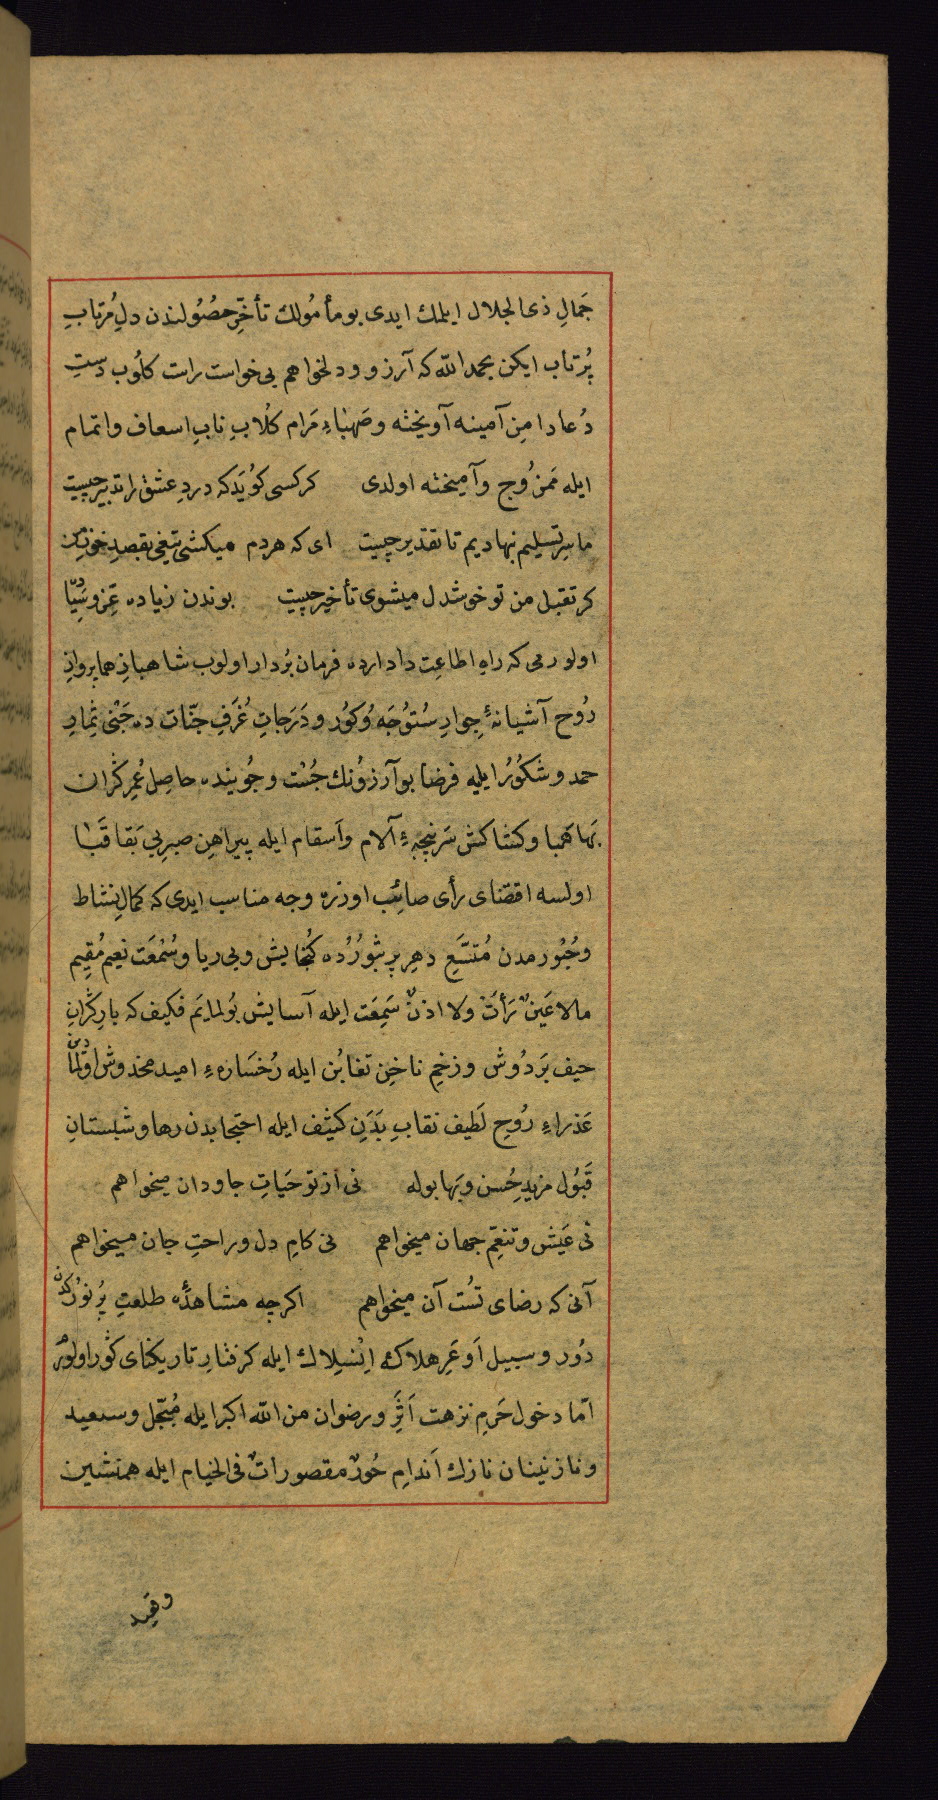 جَمالِ ذی الجلال ایلمك ایدی بو مأمُولك تأخّرِ حصُولندن دلِ مُرتابِ
پُرتاب ایکن بحمد الله که آرزو و دلخواهم بی خواست راست کلُوب دستِ
دُعا دامنِ آمینه آویخته وصَهبَاءِ مَرام کُلابِ نابِ اسعاف واتمام
ایله مَمزُوج وآمیخته اولدی کرکسی کوُیَدکه دردِ عشق را تدبیر چیست
ما سرِ تسلیم نهادیم تا تقدیر چیست ای که هردم میکشی تیغی بقصدِ خونِ من
کر تقبل من تو خوشدل میشوی تأخیر چیست بوندن زیاده عِزّ و
اولورمی که راهِ اطاعتِ دادارده فرمان بُردار اولوب شاهبازِ هما پروازِ
رُوح آشیانهٔ جِوارِ و دَرَجاتِ غُرَفِ جنّات ده جَنیِ ثِمارِ
حمد و شکوُرُ ایلیه فرضا بو آرزوُنك جُست و جُوینده حاصِلِ عُمرِ کران
بَها هَبا و کشاکش سَرپنچهٔ آلام واَسقام ایله پیراهنِ صبرِ بی بَقا قَبا
اولسه اقتضای رأی صائب اوزره وجه مناسب ایدی که کمالِ نشاط
وحُبُورمدن مُتّسَعِ دهرِ پر شُوُرُده کُنجایش و بی ریا و سُمعَت نعیم مُقیم
مالا عَینٌ رَأتْ ولا اذنٌ سَمِعَت ایله آسایش بُولمایَم فکیف که بارِ کرانِ
حیف بَر دُوش و زخمِ ناخنِ تغابُن ایله رُخسَارهٔ امید مخدوش اولمادین
عَذراءِ رُوحِ لَطیف نقابِ بَدَنِ کثیف ایله احتجابدن رها و شبستانِ
قَبُول مزیدِ حُسن و بَها بوله نی از تو حَیاتِ جاودان میخواهم
نی عَیش و تنعّمِ جهان میخواهم نی کامِ دل و راحتِ جان میخواهم
آنی که رضای تُست آن میخواهم اکرچه مشاهدهٔ طلعتِ پُرنوُرکدن
دُور و سبیل اَوعَرِ هلاکه اِنسِلاك ایله کرفتارِ تاریکنای کوُر اولورم
امّا دخول حَرمِ نزهت اَثَرِ و رضوان من الله اکبر ایله مُبجّل و سعید
و نازنینان نازك اَندامِ حُورٌ مقصوراتٌ فی الخیام ایله همنشین
وقید